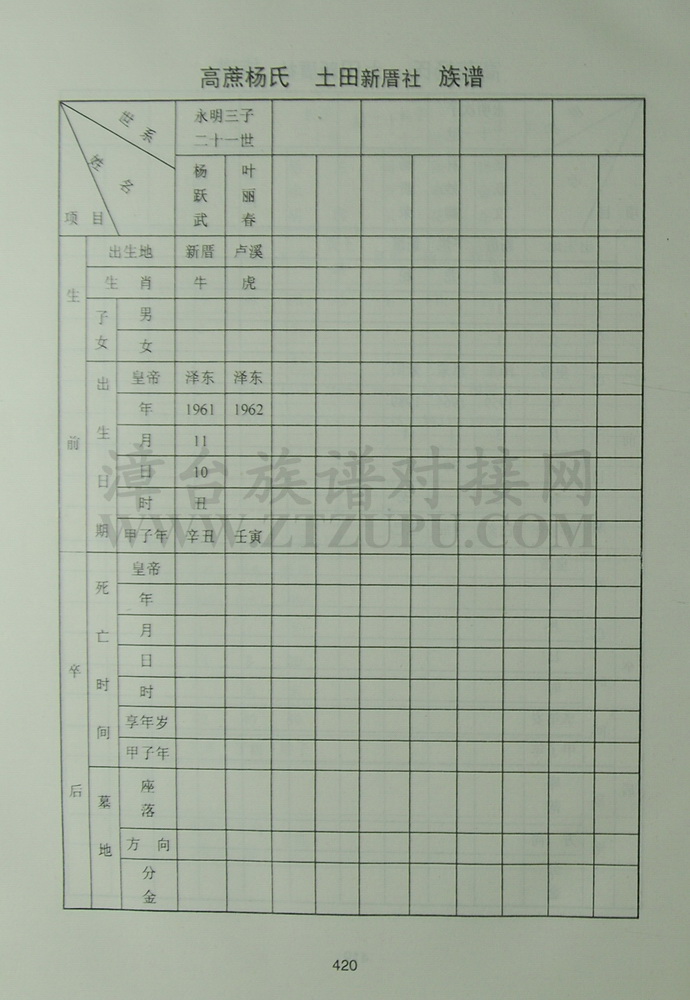 高蔗杨氏 土田新厝社 族谱
世系
姓名
项目
永明三子
二十一世
杨跃武
叶丽春
生前
出生地 新厝 卢溪
生肖 牛 虎
子女
男
女
出生日期
皇帝 泽东 泽东
年 1961 1962
月 11
日 10
时 丑
甲子年 辛丑 壬寅
卒后
死亡时间
皇帝
年
月
日
时
享年岁
甲子年
墓地
座落
方向
分金
漳台族谱对接网
WWW.ZTZUPU.COM
420